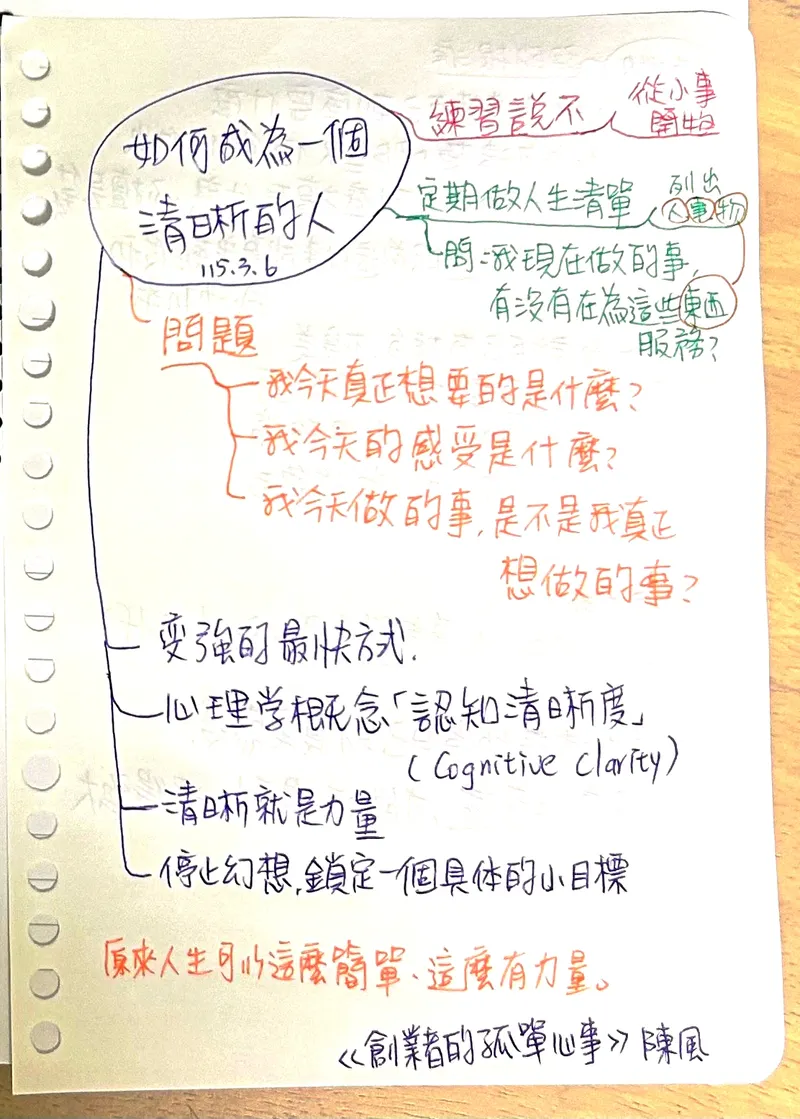 如何成為一個
清晰的人
115.3.6
練習說不
從小事
開始
定期做人生清單
列出
人事物
問:我現在做的事,
有沒有在為這些東西
服務?
問題
我今天真正想要的是什麼?
我今天的感受是什麼?
我今天做的事,是不是我真正
想做的事?
变強的最快方式.
心理学概念「認知清晰度」
(Cognitive Clarity)
清晰就是力量
停止幻想,鎖定一個具体的小目標
原來人生可以這麼簡單、這麼有力量。
《創業者的孤單心事》陳風